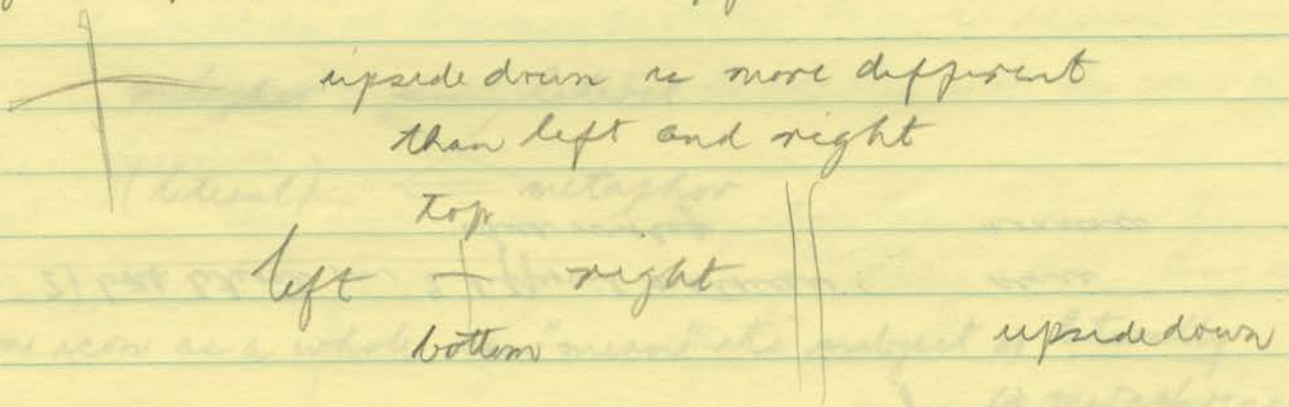 upside down is more different
than left and right
top
left right
bottom
upsidedown